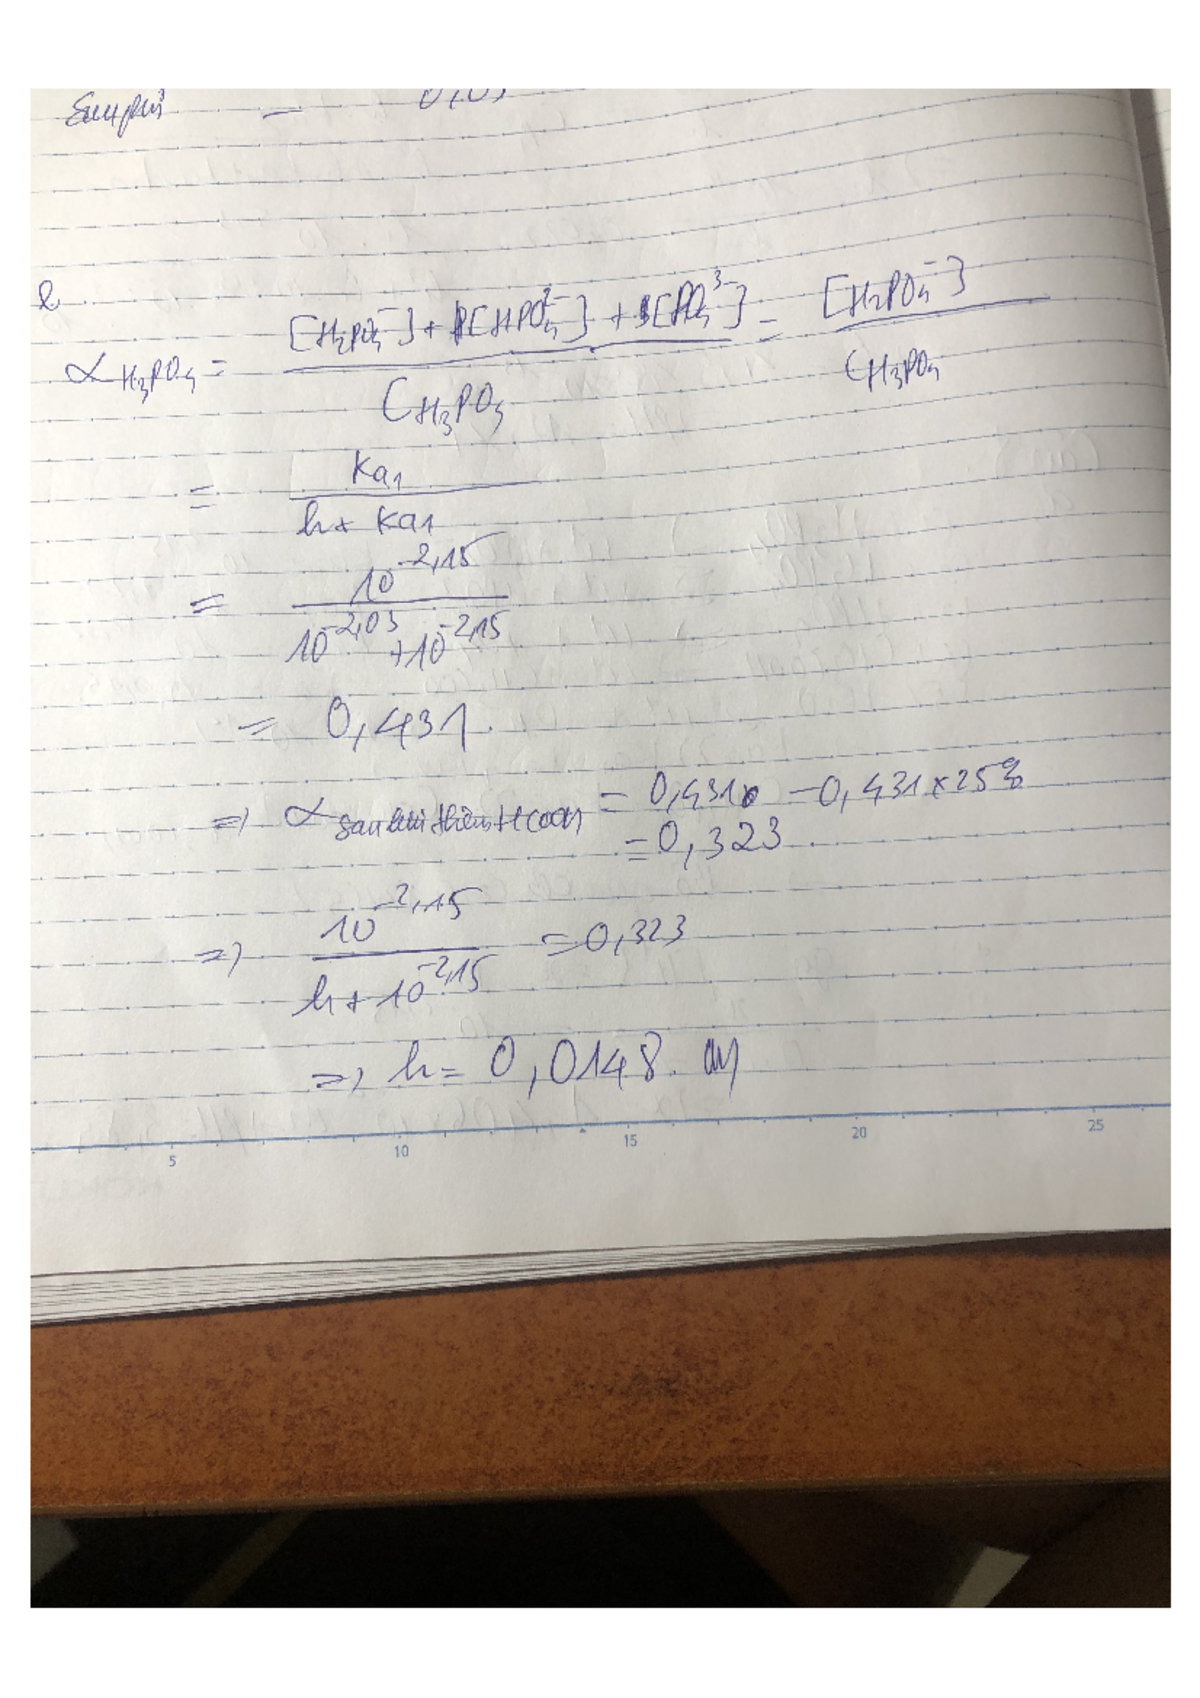 0,03
2
α H₃PO₄ = [H₂PO₄⁻] + [HPO₄²⁻] + [PO₄³⁻] / C H₃PO₄ = [H₂PO₄⁻] / C H₃PO₄
= Ka₁ / h + Ka₁
= 10^-2,15 / 10^-2,03 + 10^-2,15
= 0,431.
=> α sau khi thêm HCOOH = 0,431 - 0,431 x 25%
= 0,323
=> 10^-2,15 / h + 10^-2,15 = 0,323
=> h = 0,0148. M
5 10 15 20 25